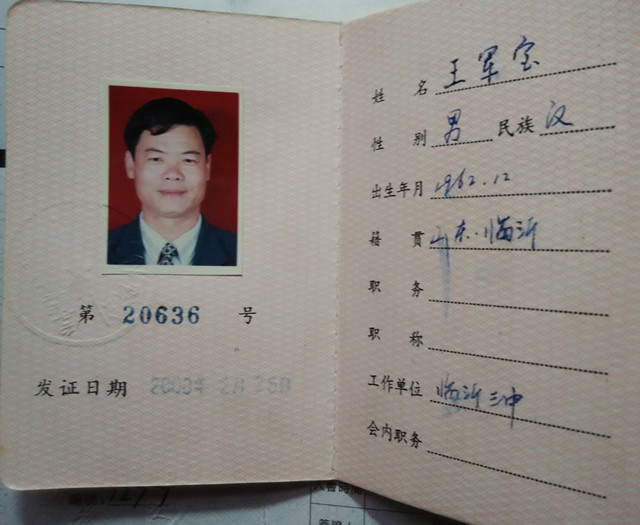 第 20636 号
发证日期 2000年 2月 25日
姓 名 王军宝
性 别 男 民族 汉
出生年月 1962.12
籍 贯 山东.临沂
职 务
职 称
工作单位 临沂三中
会内职务